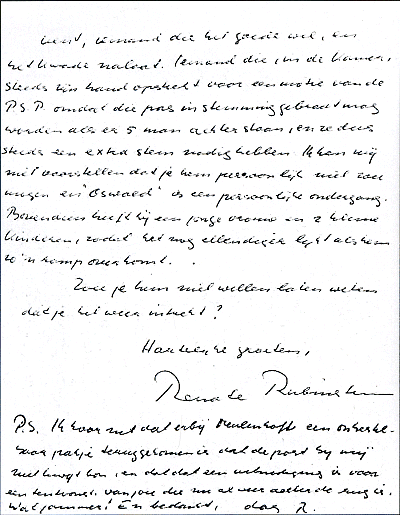 bent, iemand die het goede wil, en
het kwade nalaat. Iemand die, in de kamer,
steeds zijn hand opsteekt voor een motie van de
P.S.P. omdat die pas in stemming gebracht mag
worden als er 5 man achter staan, en ze dus
steeds een extra stem nodig hebben. Ik kan mij
niet voorstellen dat je hem persoonlijk niet zou
mogen en is een persoonlijke ondergang.
Bovendien heeft hij een jonge vrouw en 2 kleine
kinderen, zodat het nog ellendiger lijkt als hem
zo'n ramp overkomt.
Zou je hem niet willen laten weten
dat je het weer intrekt?
Hartelijke groeten,
Renate Rubinstein
P.S. Ik hoor net dat er bij Meulenhoff een onbestel-
baar pakje teruggekomen is dat de post bij mij
niet kwijt kon, en dat dat een uitnodiging is voor
een van jou die nu al weer achter de rug is.
Wat jammer! En bedankt, dag R.